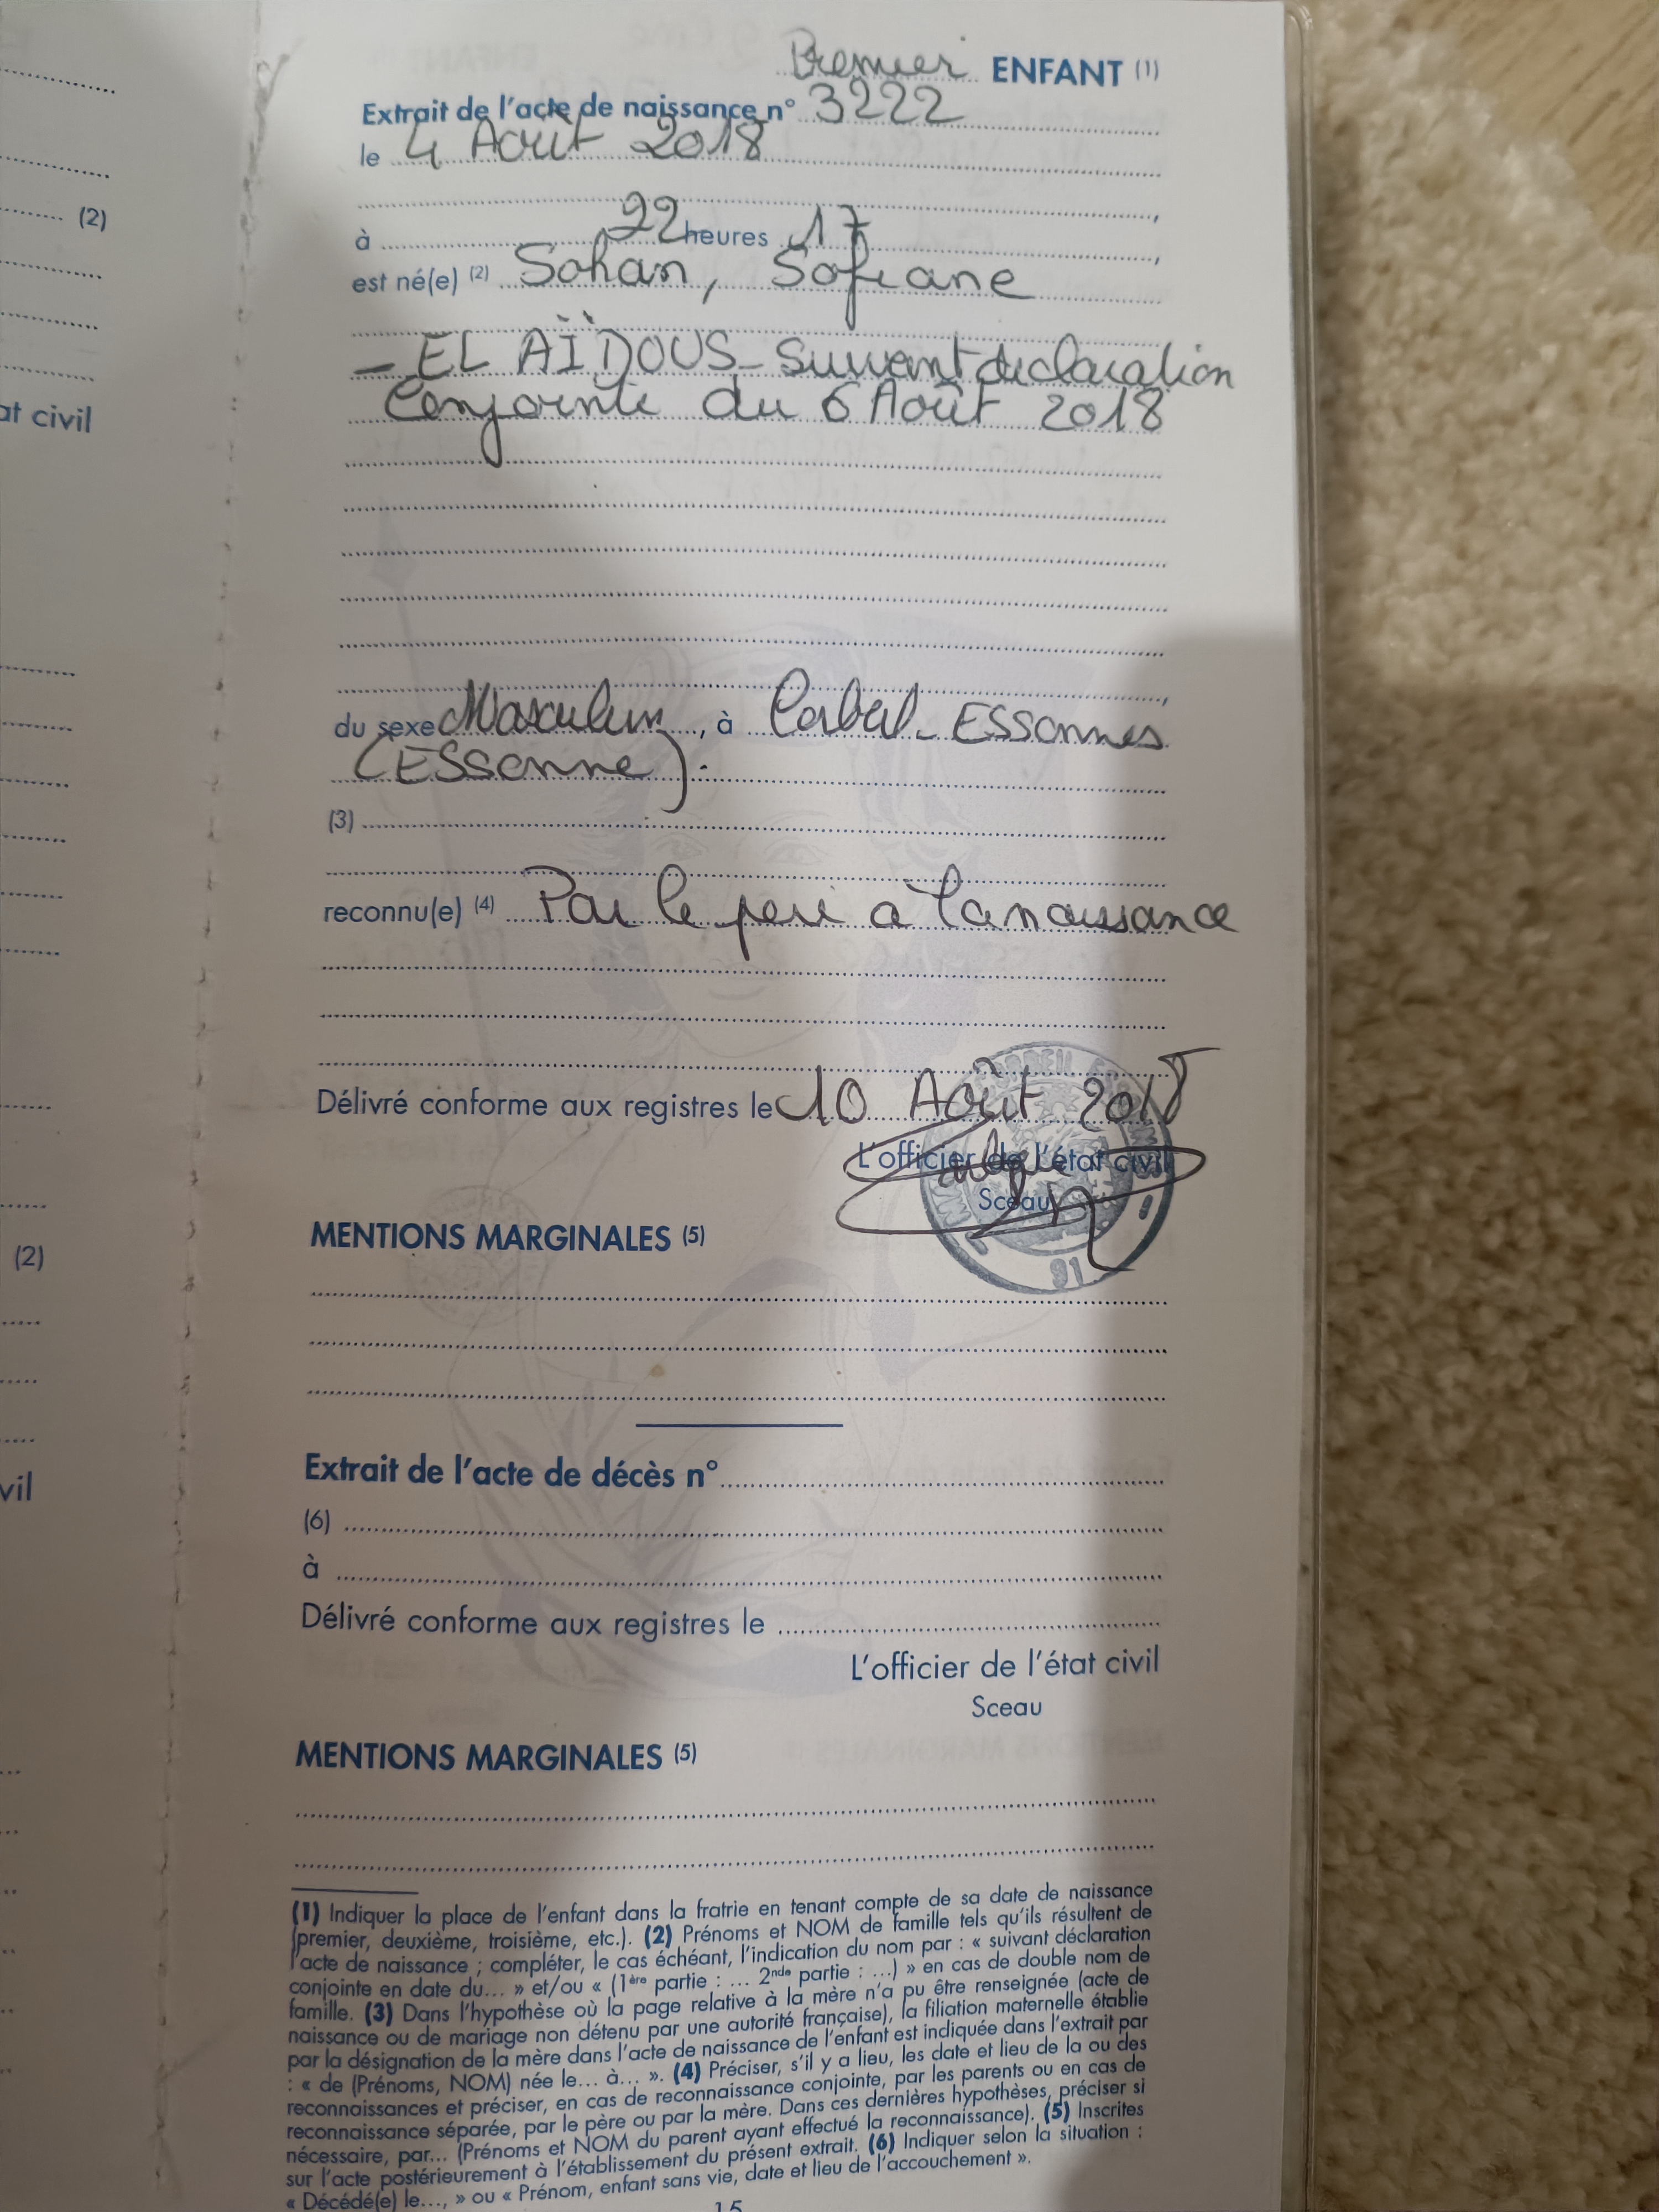 Premier ENFANT (1)
Extrait de l'acte de naissance n° 3222
le 4 Août 2018
(2)
à 22 heures 17,
est né(e) (2) Sohan, Sofiane
- EL AÏDOUS - Suivant déclaration
Conjointe du 6 Août 2018
at civil
du sexe Masculin, à Corbeil-ESSonnes
(ESSonne).
(3)
reconnu(e) (4) Par le père à la naissance
Délivré conforme aux registres le 10 Août 2018
L'officier de l'état civil
Sceau
91
MENTIONS MARGINALES (5)
(2)
Extrait de l'acte de décès n°
vil
(6)
à
Délivré conforme aux registres le
L'officier de l'état civil
Sceau
MENTIONS MARGINALES (5)
(1) Indiquer la place de l'enfant dans la fratrie en tenant compte de sa date de naissance
(premier, deuxième, troisième, etc.). (2) Prénoms et NOM de famille tels qu'ils résultent de
l'acte de naissance ; compléter, le cas échéant, l'indication du nom par : « suivant déclaration
conjointe en date du... » et/ou « (1ère partie : ... 2nde partie : ...) » en cas de double nom de
famille. (3) Dans l'hypothèse où la page relative à la mère n'a pu être renseignée (acte de
naissance ou de mariage non détenu par une autorité française), la filiation maternelle établie
par la désignation de la mère dans l'acte de naissance de l'enfant est indiquée dans l'extrait par
: « de (Prénoms, NOM) née le... à... ». (4) Préciser, s'il y a lieu, les date et lieu de la ou des
reconnaissances et préciser, en cas de reconnaissance conjointe, par les parents ou en cas de
reconnaissance séparée, par le père ou par la mère. Dans ces dernières hypothèses, préciser si
nécessaire, par... (Prénoms et NOM du parent ayant effectué la reconnaissance). (5) Inscrites
sur l'acte postérieurement à l'établissement du présent extrait. (6) Indiquer selon la situation :
« Décédé(e) le..., » ou « Prénom, enfant sans vie, date et lieu de l'accouchement ».
15